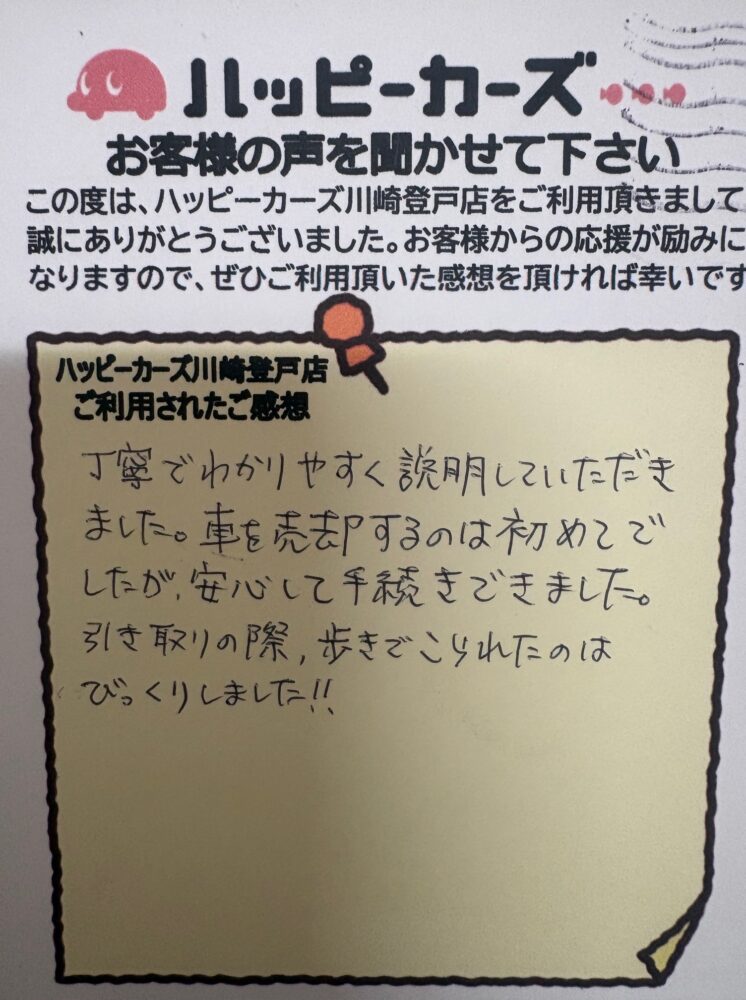 ハッピーカーズ
お客様の声を聞かせて下さい
この度は、ハッピーカーズ川崎登戸店をご利用頂きまして
誠にありがとうございました。お客様からの応援が励みに
なりますので、ぜひご利用頂いた感想を頂ければ幸いです
ハッピーカーズ川崎登戸店
ご利用されたご感想
丁寧でわかりやすく説明していただき
ました。車を売却するのは初めてで
したが、安心して手続きできました。
引き取りの際、歩きでこられたのは
びっくりしました!!